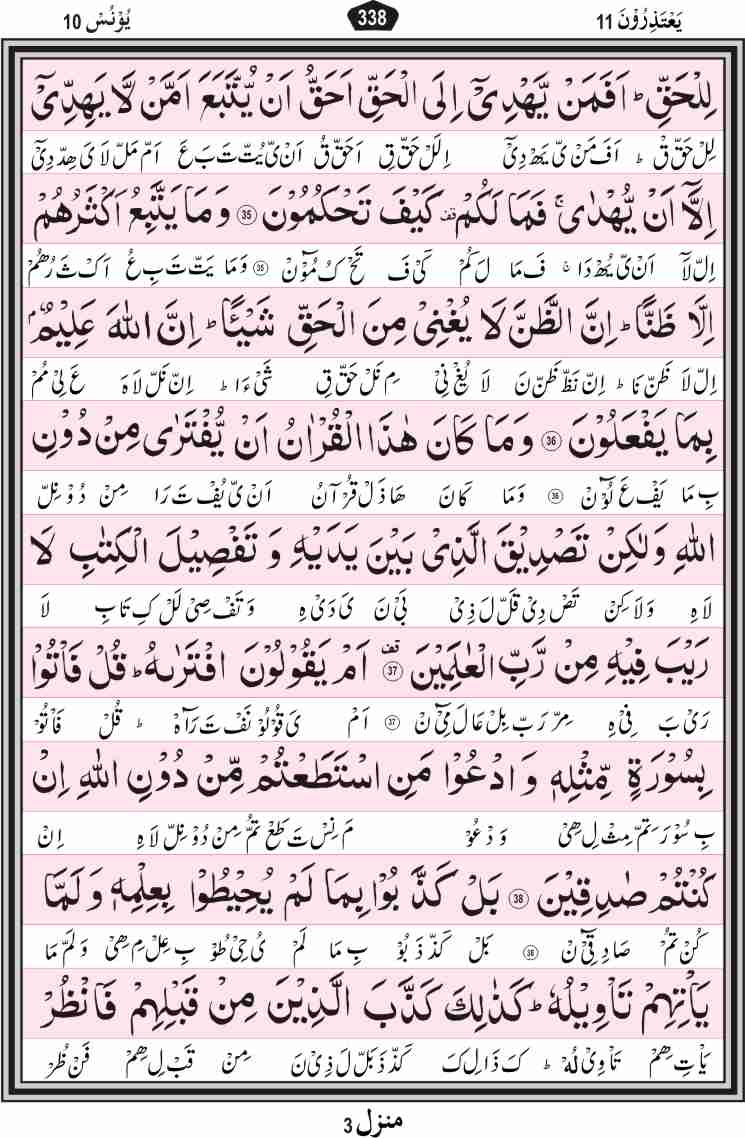 يَعْتَذِرُوْنَ 11 338 يُوْنُسْ 10
لِلْحَقِّ ؕ اَفَمَنْ يَّهْدِيْۤ اِلَى الْحَقِّ اَحَقُّ اَنْ يُّتَّبَعَ اَمَّنْ لَّا يَهِدِّيْۤ
لِلْ حَقّ قْ ؕ اَفَ مَنْ یْ یَھْ دِیْۤ اِلَلْ حَقّ قِ اَحَقّ قُ اَنْ یْ یُتّ تَ بَ عَ اَمّ مَلّ لَا یَ ھِدّ دِیْۤ
اِلَّاۤ اَنْ يُّهْدٰى ۚ فَمَا لَكُمْ ۫ كَيْفَ تَحْكُمُوْنَ 35 وَمَا يَتَّبِعُ اَكْثَرُهُمْ
اِلّ لَاۤ اَنْ یْ یُھْ دَا ۚ فَ مَا لَ کُمْ کَیْ فَ تَحْ کُ مُوْٓنْ 35 وَمَا یَتّ تَ بِ عُ اَکْ ثَ رُ ھُمْ
اِلَّا ظَنًّا ؕ اِنَّ الظَّنَّ لَا يُغْنِيْ مِنَ الْحَقِّ شَيْـًٔا ؕ اِنَّ اللّٰهَ عَلِيْمٌۢ
اِلّ لَا ظَنّ نَا ؕ اِنّ نَظّ ظَنّ نَ لَا یُغْ نِیْ مِ نَلْ حَقّ قِ شَیْ ءَا ؕ اِنّ نَلّ لَا ہَ عَ لِیْ مُمْ
بِمَا يَفْعَلُوْنَ 36 وَمَا كَانَ هٰذَا الْقُرْاٰنُ اَنْ يُّفْتَرٰى مِنْ دُوْنِ
بِ مَا یَفْ عَ لُوْٓنْ 36 وَمَا کَانَ ھَاذَلْ قُرْآنُ اَنْ یْ یُفْ تَ رَا مِنْ دُوْ نِلّ
اللّٰهِ وَلٰكِنْ تَصْدِيْقَ الَّذِيْ بَيْنَ يَدَيْهِ وَتَفْصِيْلَ الْكِتٰبِ لَا
لَا ہِ وَلَا کِنْ تَصْ دِیْ قَلّ لَ ذِیْ بَیْ نَ یَ دَیْ ہِ وَ تَفْ صِیْ لَلْ کِ تَابِ لَا
رَيْبَ فِيْهِ مِنْ رَّبِّ الْعٰلَمِيْنَ ۫ 37 اَمْ يَقُوْلُوْنَ افْتَرٰىهُ ؕ قُلْ فَاْتُوْا
رَیْ بَ فِیْ ہِ مِرّ رَبّ بِلْ عَا لَ مِیْٓ نْ 37 اَمْ یَ قُوْ لُوْ نَفْ تَ رَاہْ ؕ قُلْ فَاْ تُوْ
بِسُوْرَةٍ مِّثْلِهٖ وَادْعُوْا مَنِ اسْتَطَعْتُمْ مِّنْ دُوْنِ اللّٰهِ اِنْ
بِ سُوْ رَ تِمّ مِثْ لِ ھِیْ وَ دْعُوْ مَ نِسْ تَ طَعْ تُمّ مِنْ دُوْ نِلّ لَا ہِ اِنْ
كُنْتُمْ صٰدِقِيْنَ 38 بَلْ كَذَّبُوْا بِمَا لَمْ يُحِيْطُوْا بِعِلْمِهٖ وَلَمَّا
کُنْ تُمْ صَا دِ قِیْٓ نْ 38 بَلْ کَذّ ذَ بُوْ بِ مَا لَمْ یُ حِیْ طُوْ بِ عِلْ مِ ھِیْ وَ لَمّ مَا
يَاْتِهِمْ تَاْوِيْلُهٗ ؕ كَذٰلِكَ كَذَّبَ الَّذِيْنَ مِنْ قَبْلِهِمْ فَانْظُرْ
یَاْ تِ ھِمْ تَاْ وِیْ لُہْ ؕ کَ ذَا لِ کَ کَذّ ذَ بَلّ لَ ذِیْ نَ مِنْ قَبْ لِ ھِمْ فَنْ ظُرْ
منزل 3